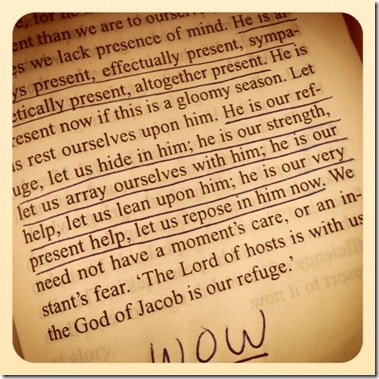 ent than we are to ourselve
es we lack presence of mind. He is al-
ys present, effectually present, sympa-
etically present, altogether present. He is
resent now if this is a gloomy season. Let
us rest ourselves upon him. He is our ref-
uge, let us hide in him; he is our strength,
let us array ourselves with him; he is our
help, let us lean upon him; he is our very
present help, let us repose in him now. We
need not have a moment's care, or an in-
stant's fear. 'The Lord of hosts is with us
the God of Jacob is our refuge.'
WOW